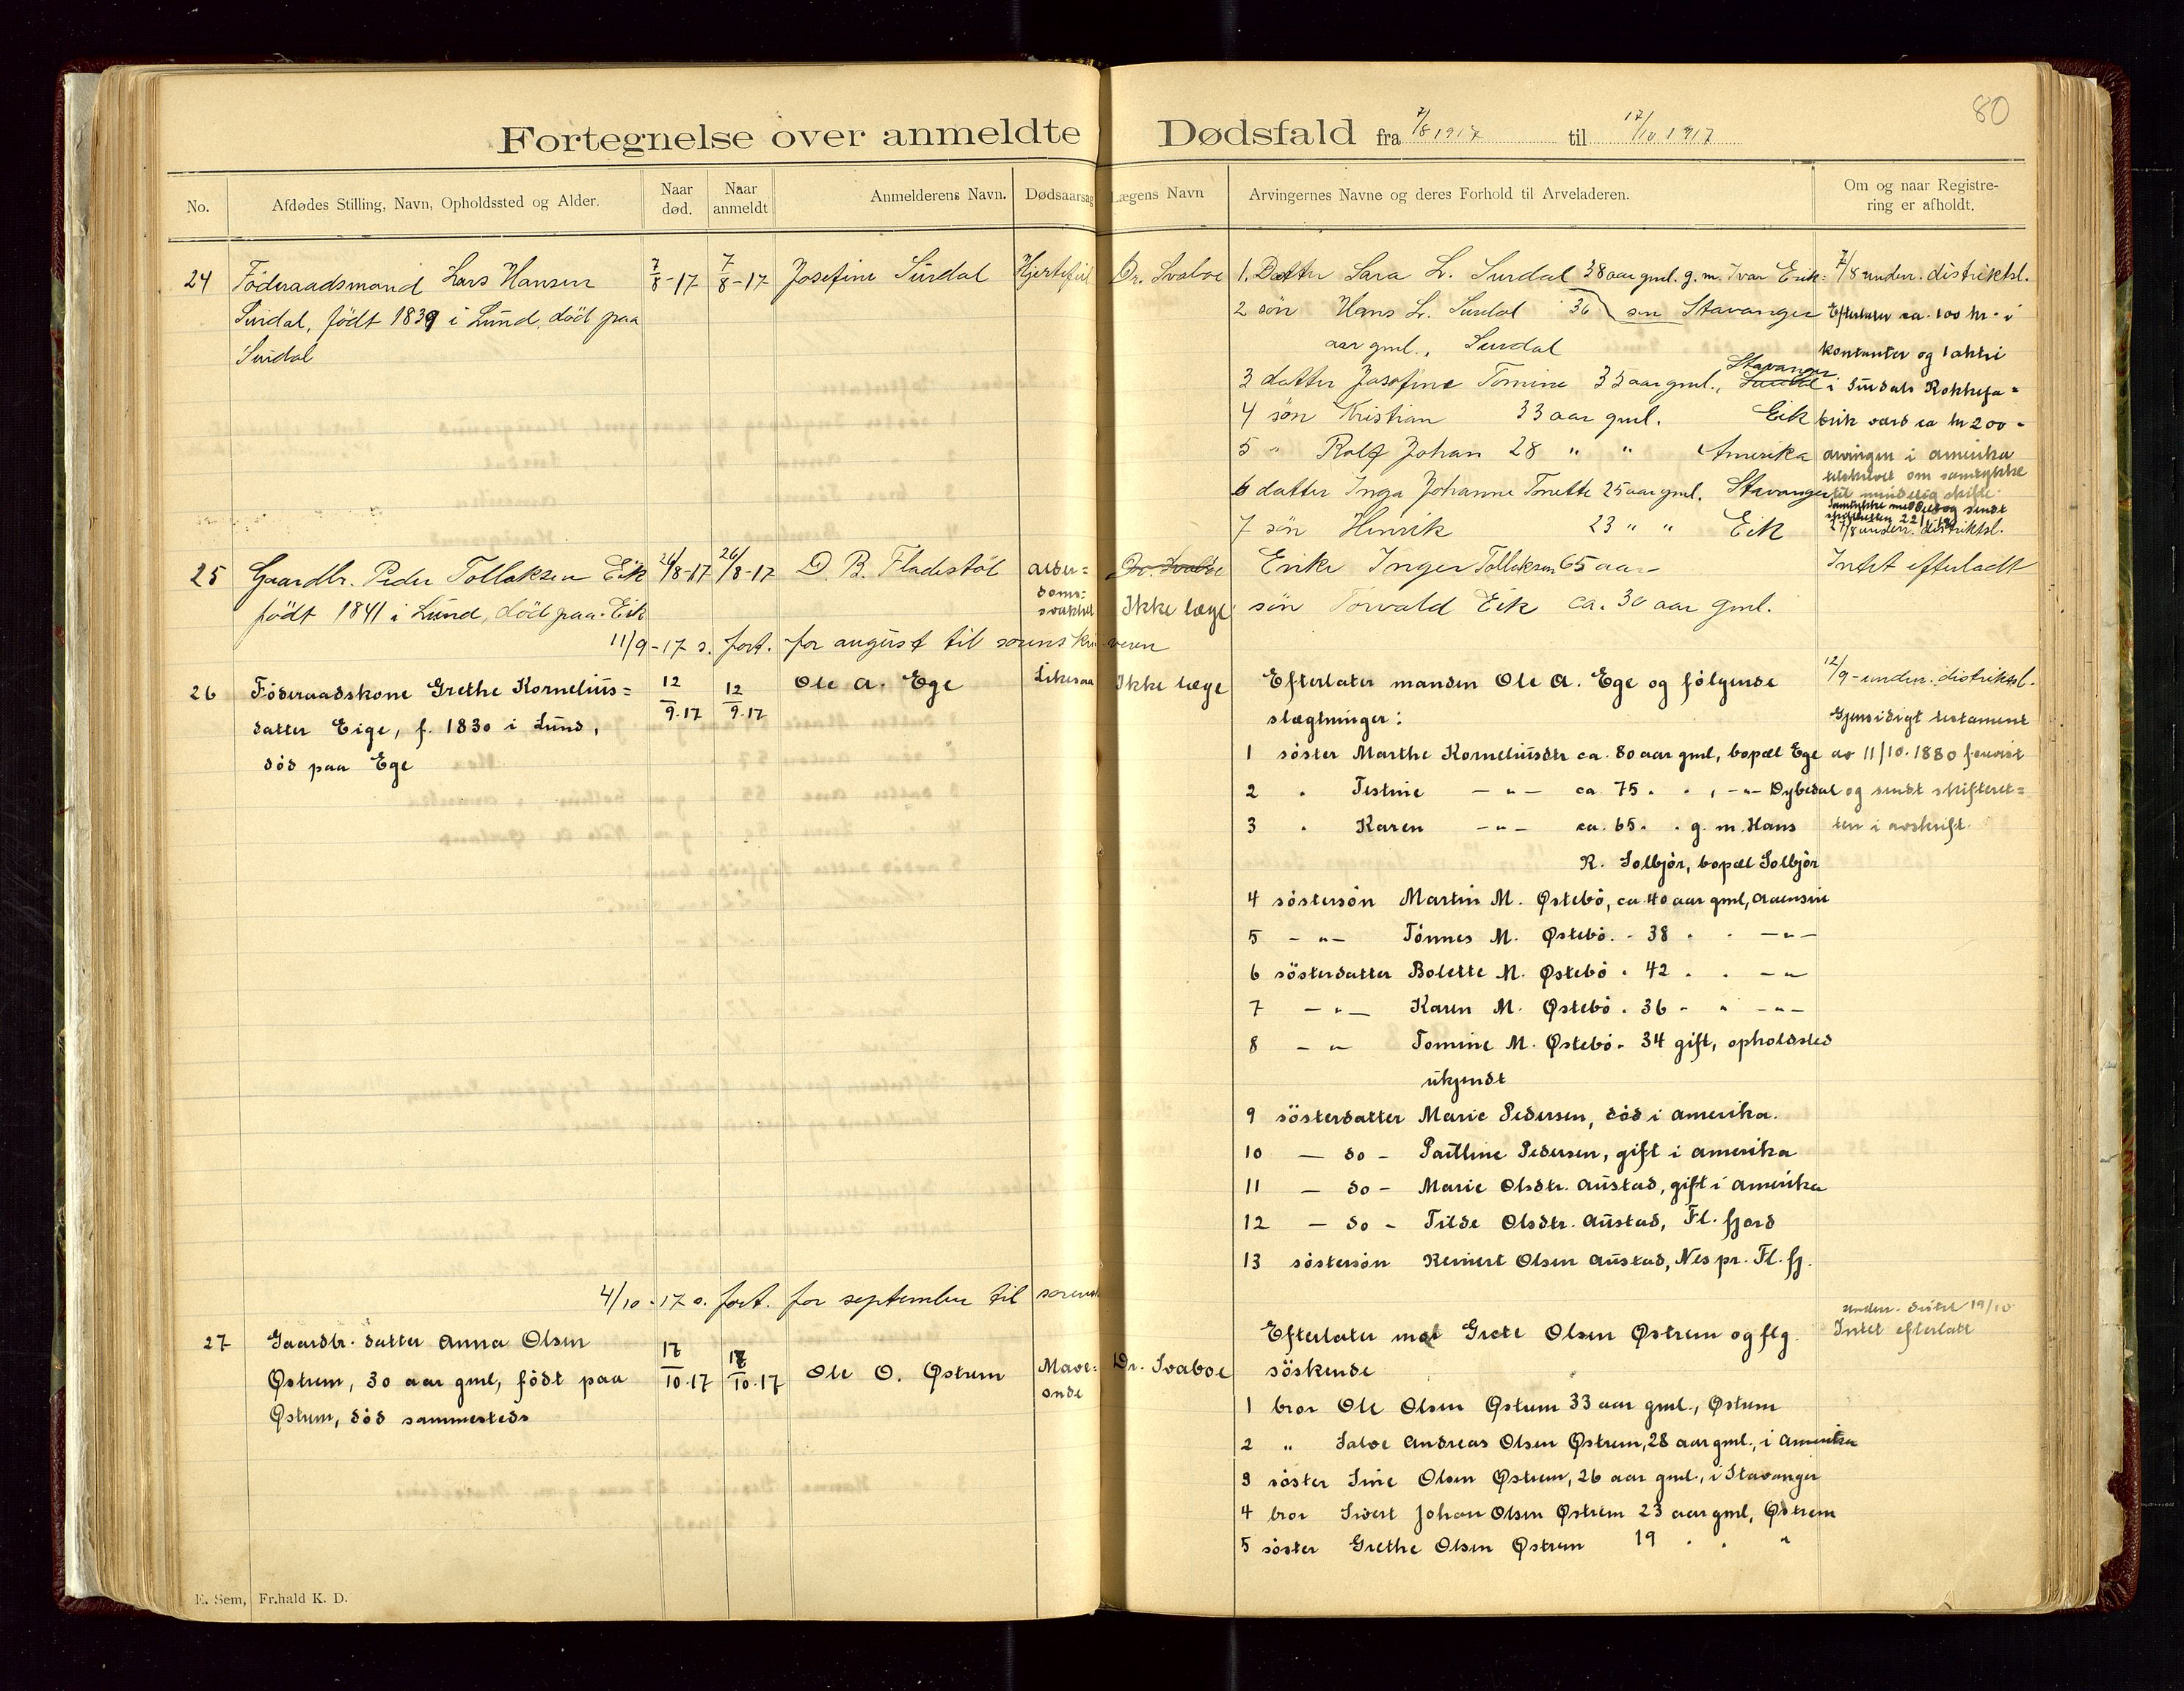 80
Fortegnelse over anmeldte Dødsfald fra 7/8 1917 til 17/10 1917
No.
Afdødes Stilling, Navn, Opholdssted og Alder.
Naar død.
Naar anmeldt
Anmelderens Navn.
Dødsaarsag
Lægens Navn
Arvingernes Navne og deres Forhold til Arveladeren.
Om og naar Registrering er afholdt.
24 Föderaadsmand Lars Hansen 7/8-17 7/8-17 Josefine Surdal Hjertefeil Dr. Svaboe
Surdal, födt 1839 i Lund, död paa
Surdal
1. Datter Sara L. Surdal 38 aar gml. g. m. Ivar Eik.
2 søn Hans L. Surdal 36 Stavanger
aar gml., Surdal
Stavanger
3 datter Josefine Tomine 35 aar gml., Surdal
4 søn Kristian 33 aar gml. Eik
5 " Rolf Johan 28 " " Amerika
6 datter Inga Johanne Tonette 25 aar gml. Stavanger
7 søn Henrik 23 " " Eik
7/8 under. distriktsl.
Efterlater ca. 100 kr. i
kontanter og 1 aktie
i Surdals Rokkefa=
brik værd ca kr 200-
arvingen i amerika
tilskrevet om samtykke
til mindelig skifte.
27/8 underr. distriktsl.
25 Gaardbr. Peder Tollaksen Eik 26/8-17 26/8-17 D. B. Fladestöl alder=
doms=
svakhet
Dr. Svaboe
Ikke læge
födt 1841 i Lund, död paa Eik
Enke Inger Tollaksen 65 aar
søn Torvald Eik ca. 30 aar gml.
Intet efterladt
11/9-17 s. fort. for august til sorenskriveren
26 Föderaadskone Grethe Kornelius= 12/9.17 12/9.17 Ole A. Ege Likesaa Ikke læge
datter Eige, f. 1830 i Lund,
død paa Ege
Efterlater manden Ole A. Ege og følgende
slægtninger:
1 søster Marthe Korneliusdtr ca. 80 aar gml, bopæl Ege
2 " Testine - " - ca 75 " " , - " - Dybedal
3 " Karen - " - ca. 65 " " g. m. Hans
R. Solbjør, bopæl Solbjør
4 søstersøn Martin M. Østebö, ca 40 aar gml, Aaensire
5 - " - Tønnes M. Østebö. " 38 " " - " -
6 søsterdatter Bolette M. Østebö " 42 " " - " -
7 - " - Karen M. Østebö " 36 " " - " -
8 - " - Tomine M. Østebö " 34 gift, opholdssted
ukjendt
9 søsterdatter Marie Pedersen, död i amerika.
10 - do - Pauline Pedersen, gift i amerika
11 - do - Marie Olsdtr. Austad, gift i amerika
12 - do - Tilde Olsdtr. Austad, Fl. fjord
13 søstersøn Reinert Olsen Austad, Nes pr. Fl. fj.
12/9- under. distriktsl.
Gjensidigt testament
av 11/10.1880 forevist
og sendt skifteret=
ten i avskrift.
4/10-17 s. fort. for september til sorensk
27 Gaardbr. datter Anna Olsen 17/10.17 17/10.17 Ole O. Østrem Mave=
onde
Dr. Svaboe
Østrem, 30 aar gml, født paa
Østrem, död sammesteds
Efterlater mor Grete Olsen Østrem og flg.
søskende
1 bror Ole Olsen Østrem 33 aar gml., Østrem
2 " Salve Andreas Olsen Østrem, 28 aar gml., i Amerika
3 søster Sine Olsen Østrem, 26 aar gml., i Stavanger
4 bror Sivert Johan Olsen Østrem 23 aar gml, Østrem
5 søster Grethe Olsen Østrem 19 " " "
under. distrl 19/10
Intet efterlatt
E. Sem, Fr.hald K. D.